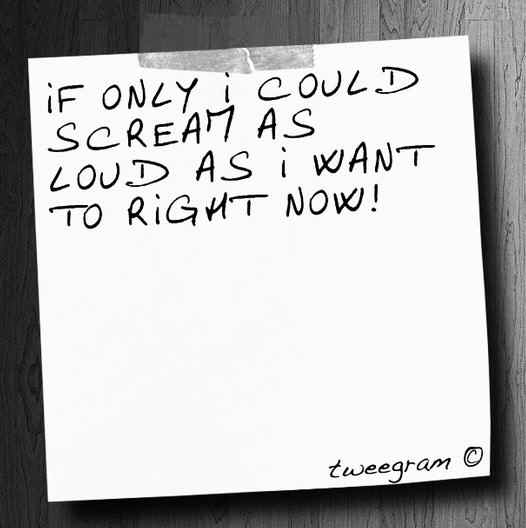 iF ONLY i COULD
SCREAM AS
LOUD AS i WANT
TO RiGHT NOW!
tweegram ©